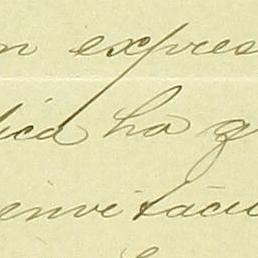 n expres
lica ha g
envitaciu